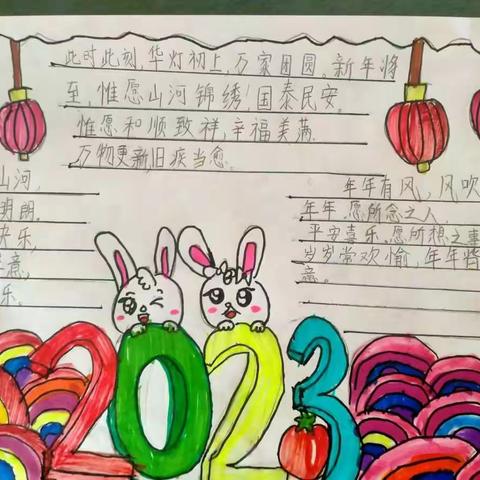 此时此刻,华灯初上,万家团圆。新年将
至,惟愿山河锦绣,国泰民安。
惟愿和顺致祥,辛福美满.
万物更新,旧疾当愈.
山河,
明朗.
快乐,
意,
乐.
年年有风,风吹
年年,愿所念之人,
平安喜乐.愿所想之事
岁岁常欢愉,年年将
意.
2023